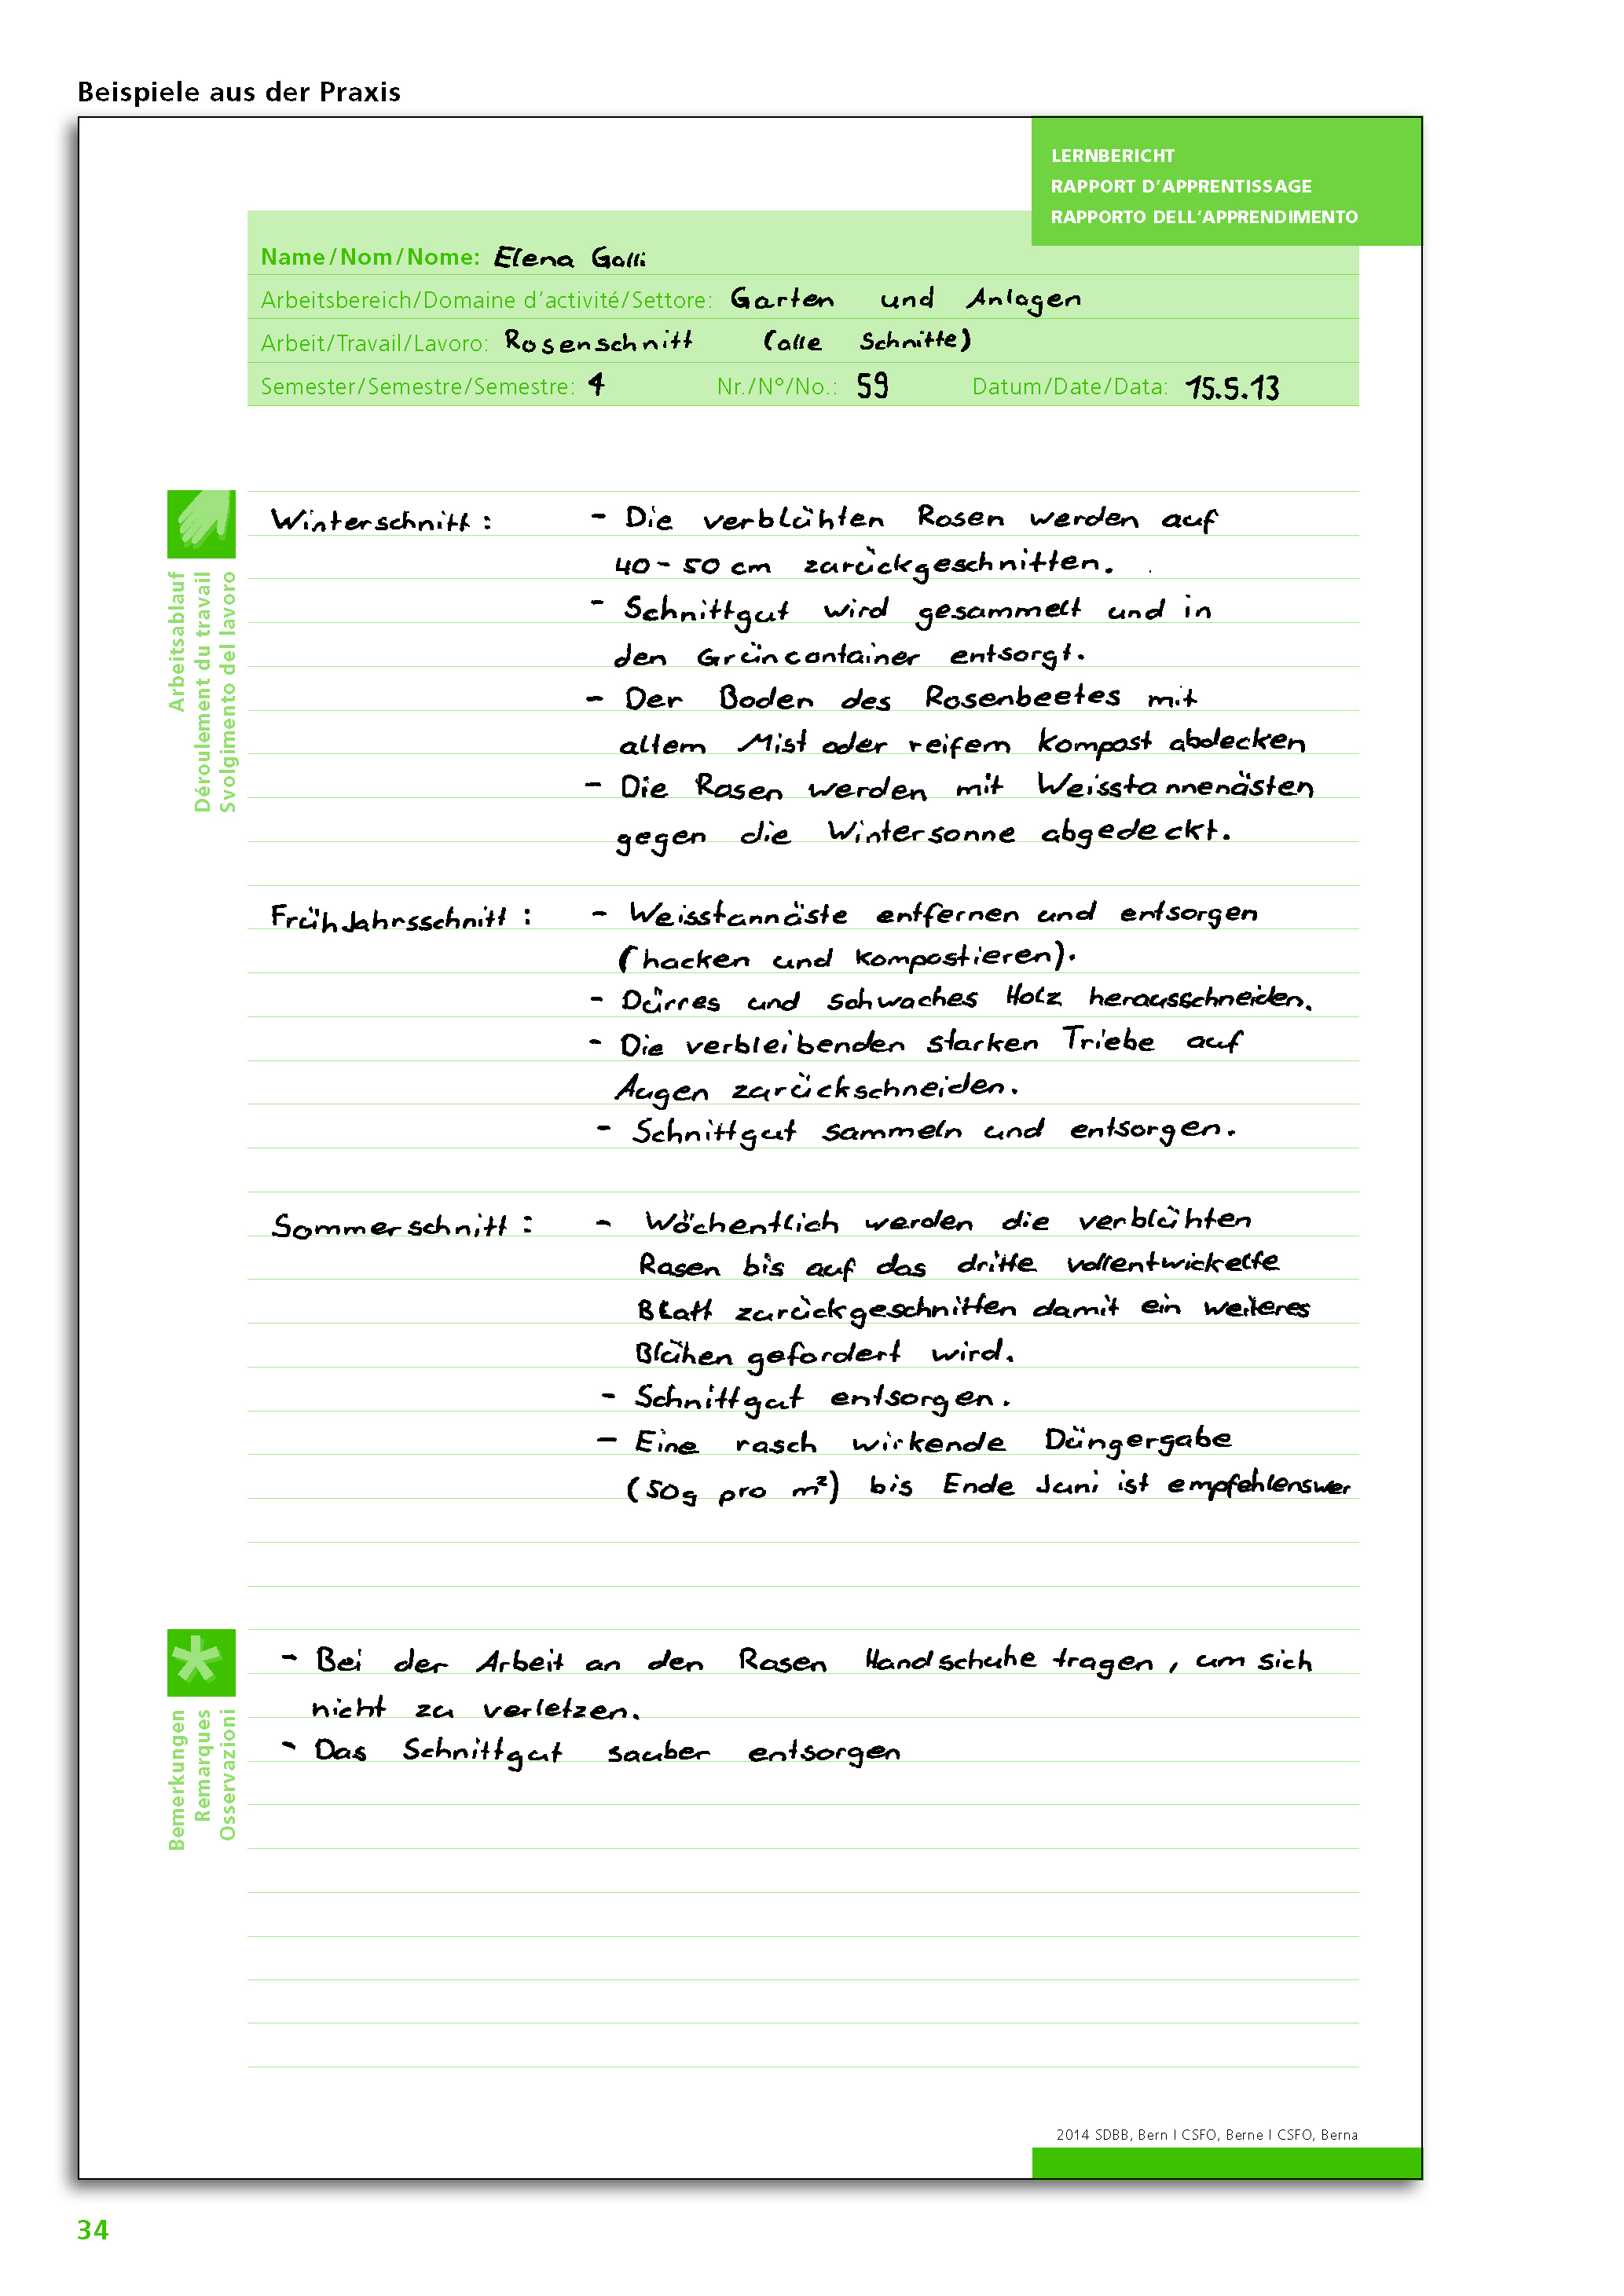 Beispiele aus der Praxis
LERNBERICHT
RAPPORT D'APPRENTISSAGE
RAPPORTO DELL'APPRENDIMENTO
Name/Nom/Nome: Elena Galli
Arbeitsbereich/Domaine d'activité/Settore: Garten und Anlagen
Arbeit/Travail/Lavoro: Rosenschnitt (alle Schnitte)
Semester/Semestre/Semestre: 4 Nr./N°/No.: 59 Datum/Date/Data: 15.5.13
Arbeitsablauf
Déroulement du travail
Svolgimento del lavoro
Winterschnitt: - Die verblühten Rosen werden auf
40-50 cm zurückgeschnitten.
- Schnittgut wird gesammelt und in
den Grüncontainer entsorgt.
- Der Boden des Rosenbeetes mit
altem Mist oder reifem Kompost abdecken
- Die Rosen werden mit Weisstannenästen
gegen die Wintersonne abgedeckt.
Frühjahrsschnitt: - Weisstannäste entfernen und entsorgen
(hacken und kompostieren).
- Dürres und schwaches Holz herausschneiden.
- Die verbleibenden starken Triebe auf
Augen zurückschneiden.
- Schnittgut sammeln und entsorgen.
Sommerschnitt: - Wöchentlich werden die verblühten
Rosen bis auf das dritte vollentwickelte
Blatt zurückgeschnitten damit ein weiteres
Blühen gefordert wird.
- Schnittgut entsorgen.
- Eine rasch wirkende Düngergabe
(50g pro m²) bis Ende Juni ist empfehlenswer
Bemerkungen
Remarques
Osservazioni
- Bei der Arbeit an den Rosen Handschuhe tragen, um sich
nicht zu verletzen.
- Das Schnittgut sauber entsorgen
2014 SDBB, Bern I CSFO, Berne I CSFO, Berna
34